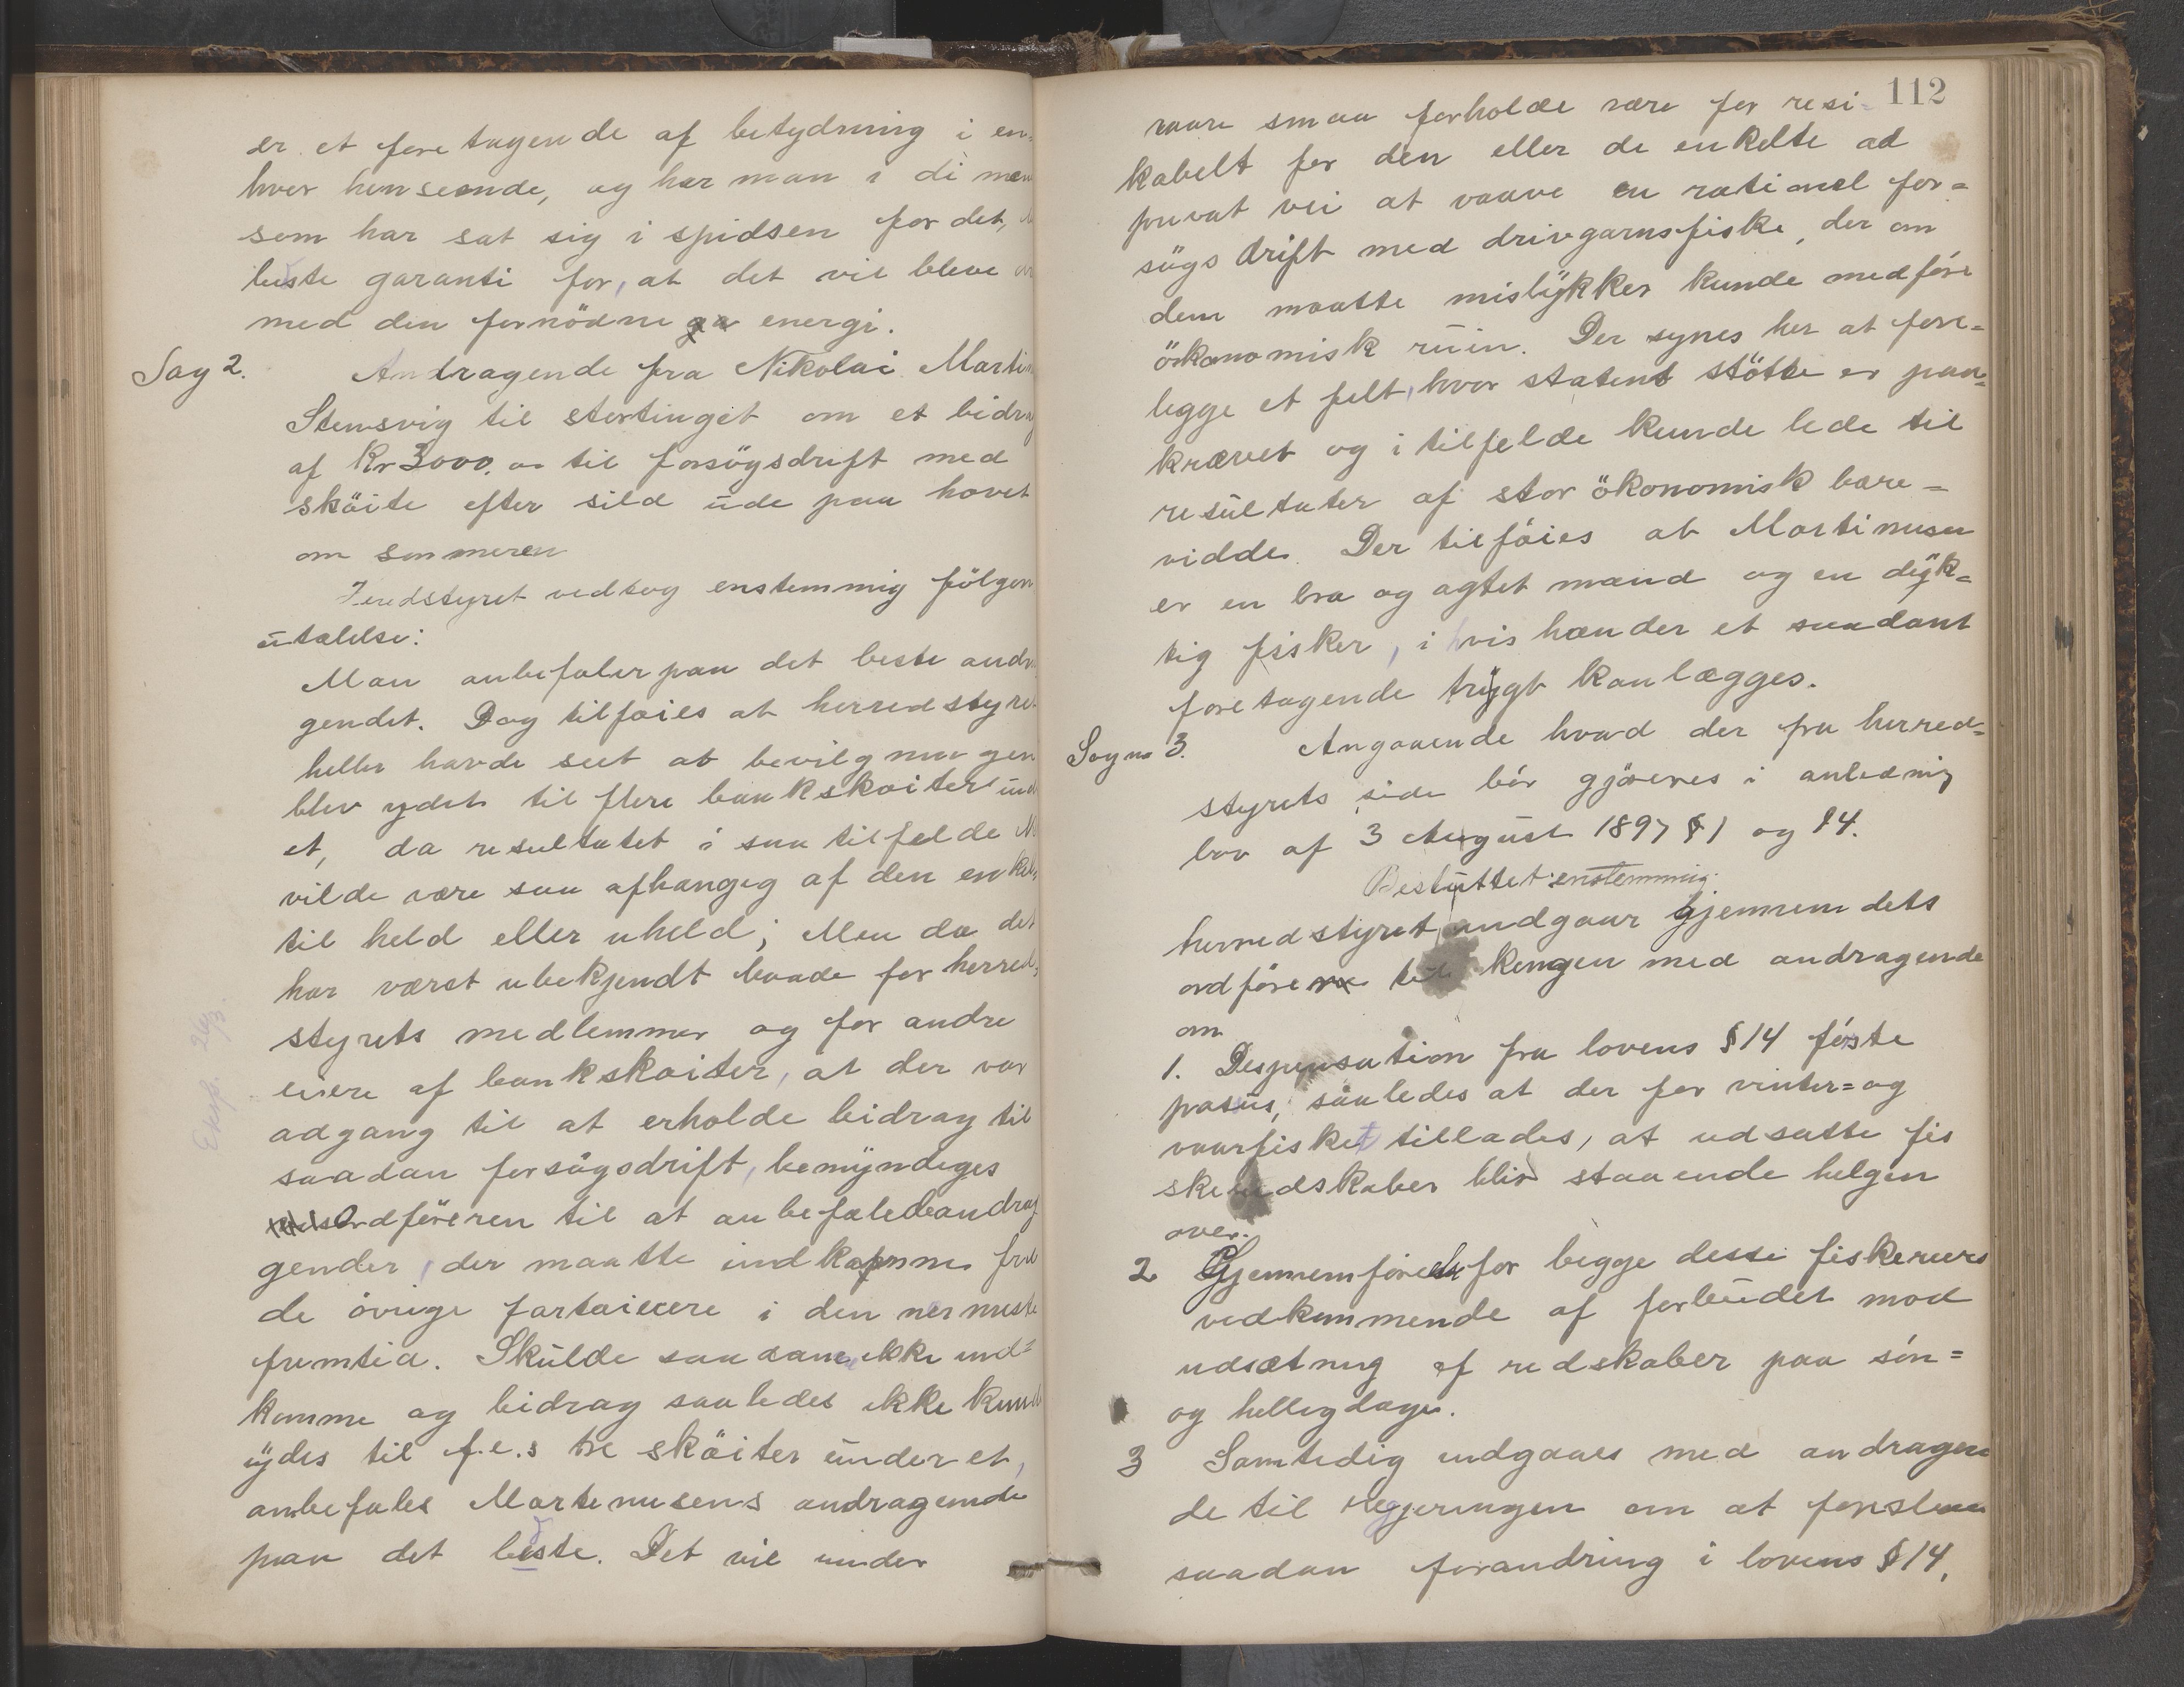 er et foretagende af betydning i en-
hver henseende, og har man i di mæn
som har sat sig i spidsen for det,
beste garanti for, at det vil bleve
med den fornödne energi.
Sag 2. Andragende fra Nikolai Martin
Stensvig til stortinget om et bidrag
af Kr 3000. oo til forsögsdrift med
sköite efter sild ude paa havet
om sommeren
Heredstyret vedtog enstemmig fölgen
utalelse:
Man anbefaler paa det beste andra
gendet. Dog tilfoies at herredstyret
heller havde seet at bevilgninngen
blev ydet til flere bankskoiter und
et, da resultatet i saa tilfelde
vilde være saa afhangeg af den enkel-
til held eller uheld; Men da det
har været ubekjendt baade for herred-
styrets medlemmer og for andre
eiere af bankskoiter, at der var
adgang til at erholde bidrag til
saadan forsögsdrift, bemyndiges
Ordföreren til at anbefale deandra
gender, der maatte indkomme fra
de övrige fartoieiere i den nermeste
fremtid. Skulde saadane ikke ind=
komme og bidrag saaledes ikke kunde
ydes til f.e.s tre sköiter under et,
anbefales Martinusens andragende
paa det beste. Det vil under
Eksp. 26/3
112
vaare smaa forholde være for resi-
kabelt for den eller de enkelte ad
privat vei at vaave en rationel for=
sögs drift med drivgarnsfiske, der om
dem maatte mislykkes kunde medföre
ökonomisk ruin. Der synes her at fore=
legge et felt, hvor statens stötte er paa=
krævet og i tilfelde kunde lede til
resultater af stor ökonomisk bære=
vidde. Der tilföies at Martinusen
er en bra og agtet mand og en dyk=
tig fisker, i hvis hænder et saadant
foretagende trygt kan lægges.
Sag no 3. Angaaende hvad der fra herred=
styrets side bör gjöres i anledning
lov af 3 August 1897 § 1 og 14.
Besluttet enstemmig.
herredstyret andgaar gjennem dets
ordförer til kongen med andragende
om
1. Despensation fra lovens § 14 förste
pasus, saaledes at der for vinter= og
vaarfisket tillades, at udsatte fis
skeredskaber bliv staaende helgen
over.
2 Gjennemförelse for begge desse fiskeriers
vedkommende af forbudet mod
udsætning af redskaber paa sön=
og helligdage.
3 Samtedig indgaaes med andragen
de til regjeringen om at foreslaa
saadan forandring i lovens § 14,